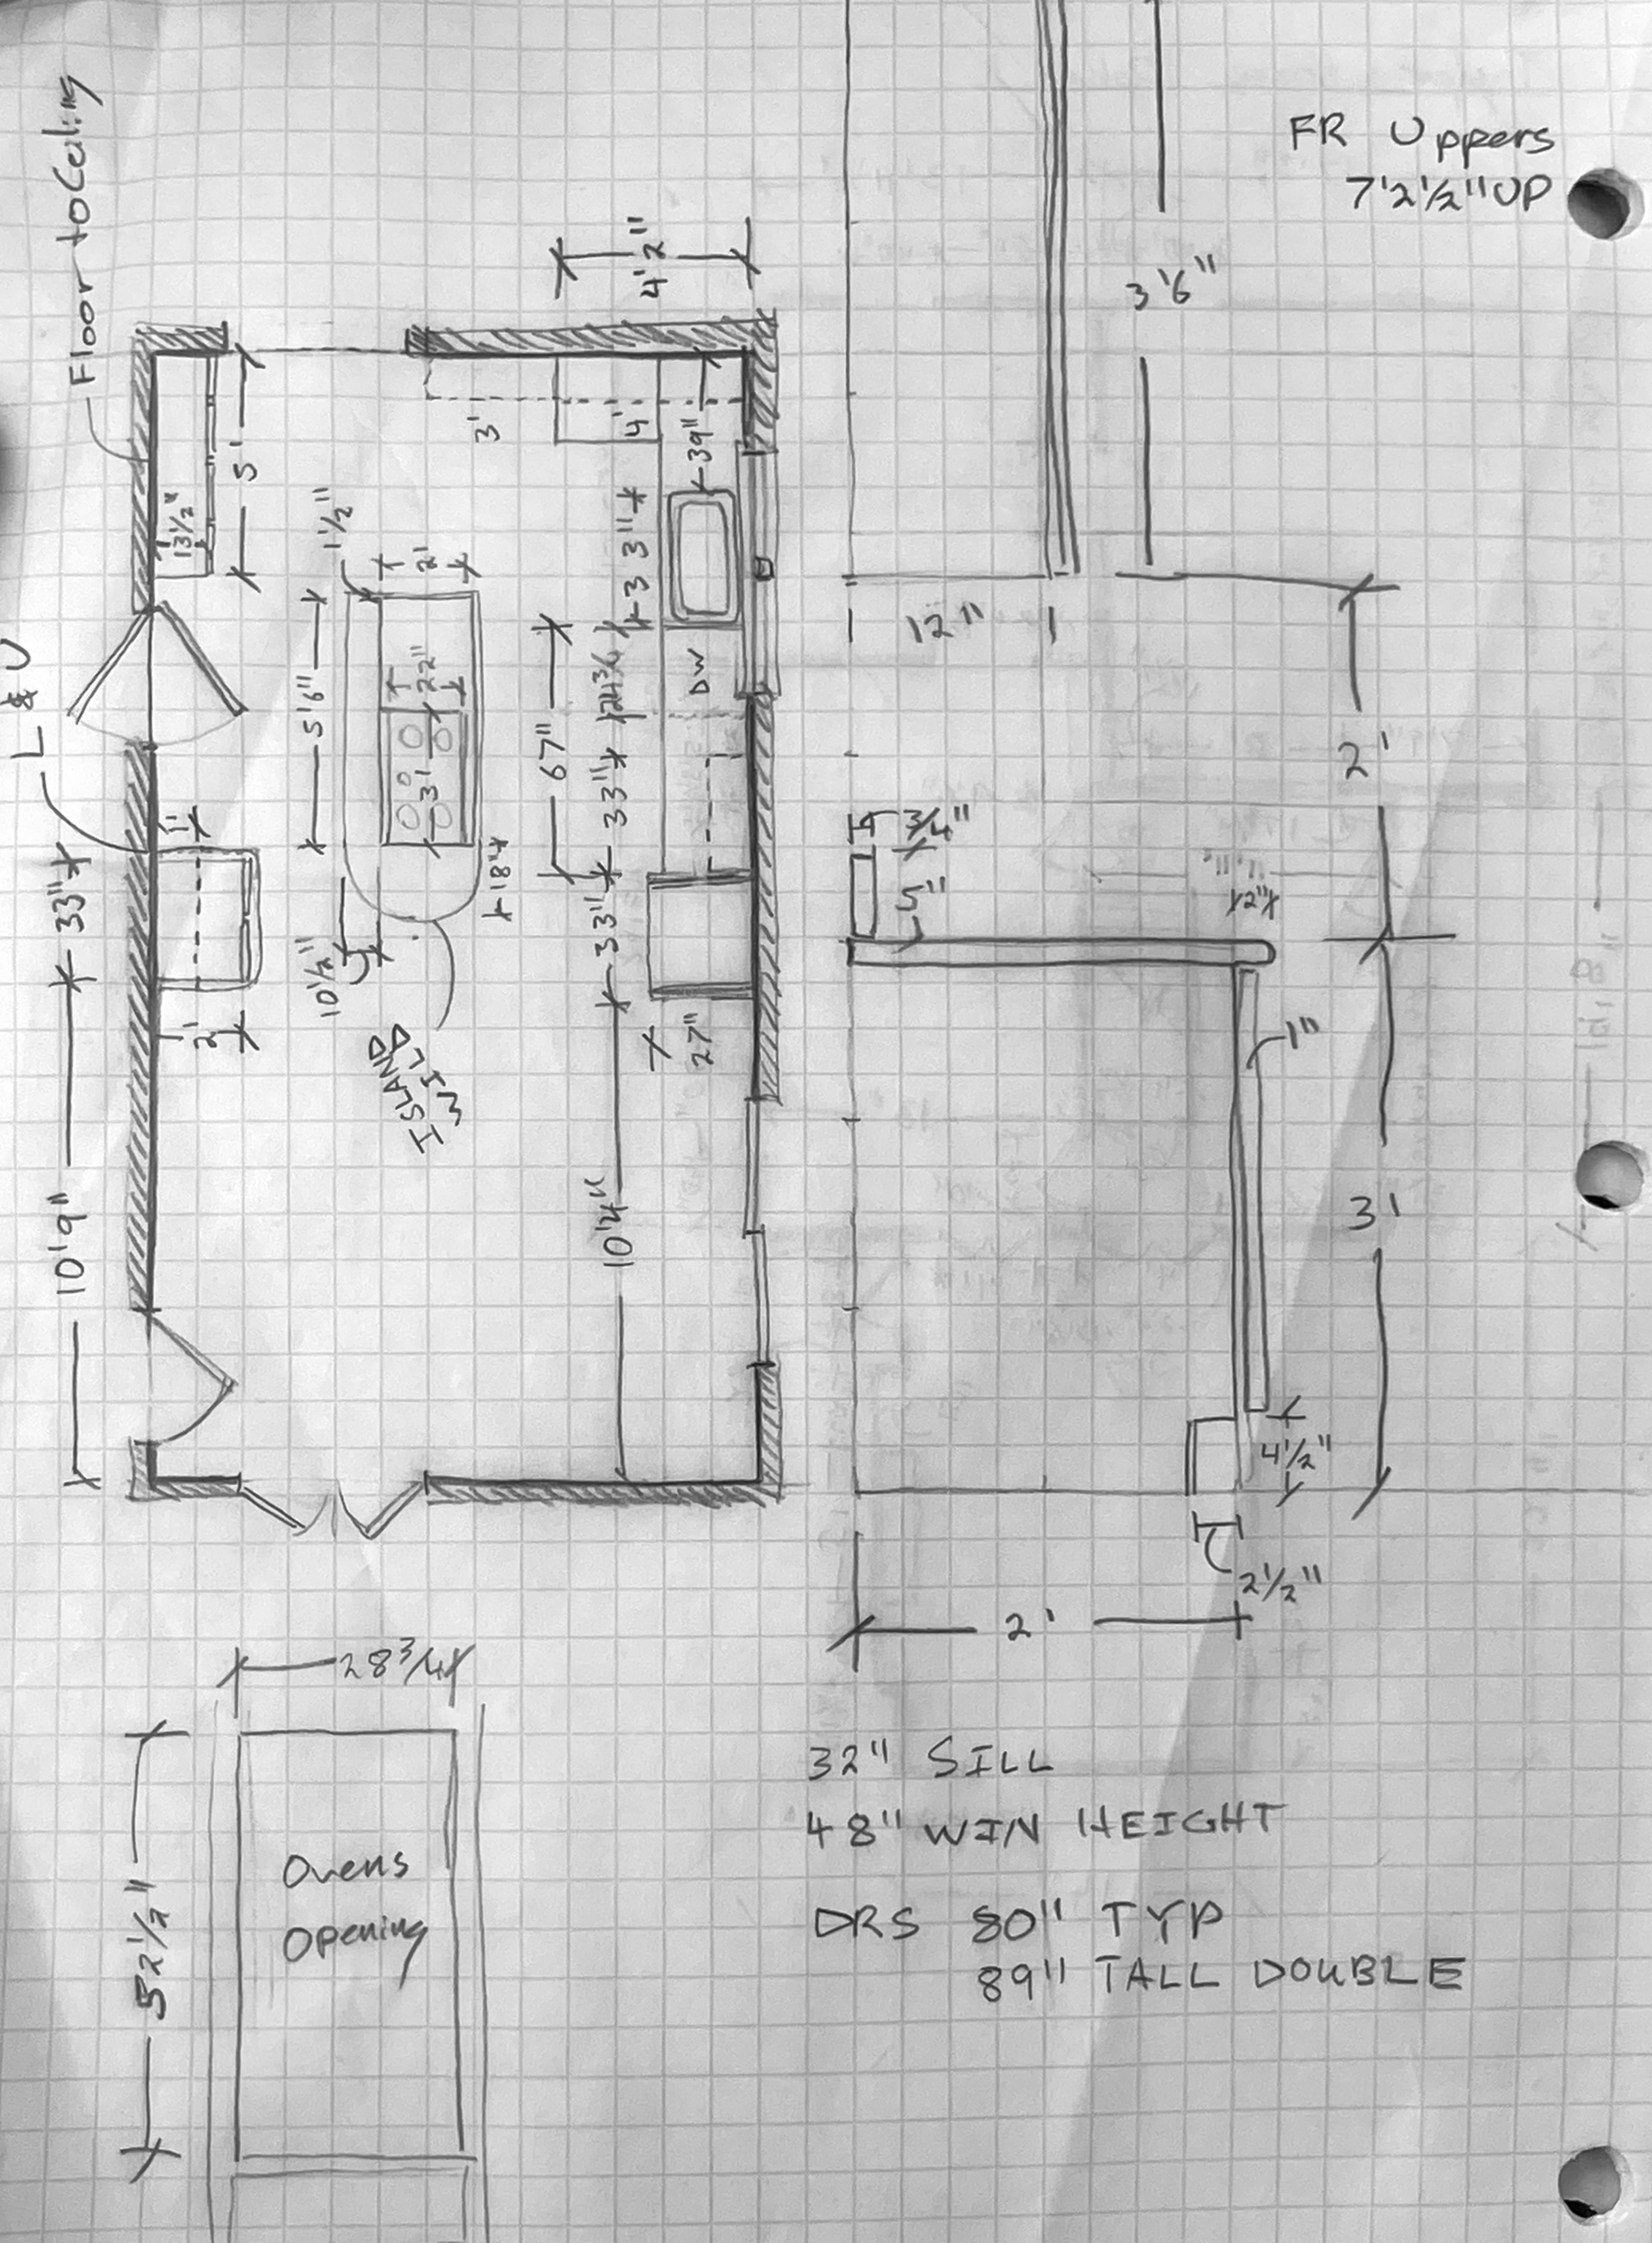 Floor to Ceiling
FR Uppers
7'2½" UP
4'2"
3'6"
5'
13½"
3'
4'
39"
1½"
2'
33"
L & U
5'6"
22"
3'
67"
24¾
DW
33"
12"
2'
1'
33"
18"
33"
¾"
5"
½"
10½"
2'
27"
1"
ISLAND
WILD
10'9"
10'4"
3'
4½"
2½"
2'
28¾
52½"
Ovens
Opening
32" SILL
48" WIN HEIGHT
DRS 80" TYP
89" TALL DOUBLE